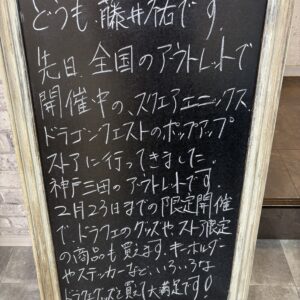 どうも、藤井祐です。
先日、全国のアウトレットで
開催中の、スクエアエニックス、
ドラゴンクエストのポップアップ
ストアに行ってきました。
神戸三田のアウトレットです。
2月23日までの限定開催
で、ドラクエのグッズやストア限定
の商品も買えます。キーホルダー
やステッカーなど、いろいろな
ドラクエグッズと買えて大満足です!